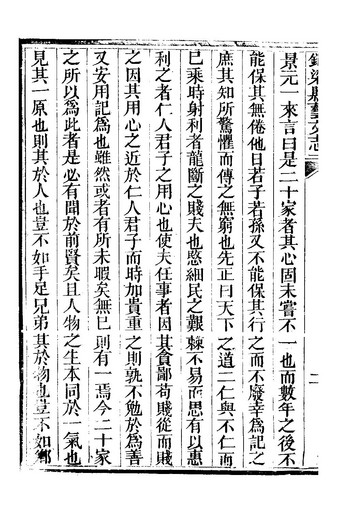 梁縣藝文志
二
景元一來言曰是二十家者其心固未嘗不一也而數年之後不
能保其無倦他日若子若孫又不能保其行之而不廢幸爲記之
庶其知所驚懼而傳之無窮也先正曰天下之道二仁與不仁而
巳乘時射利者龍斷之賤夫也愍細民之艱棘不易而思有以惠
利之者仁人君子之用心也使夫任事者因其貪鄙苟賤從而賤
之因其用心之近於仁人君子而時加貴重之則孰不勉於爲善
又安用記爲也雖然或者有所未暇矣無巳則有一焉今二十家
之所以爲此者是必有聞於前賢矣且人物之生本同於一氣也
見其一原也則其於人也豈不如手足兄弟其於物也豈不如鄉